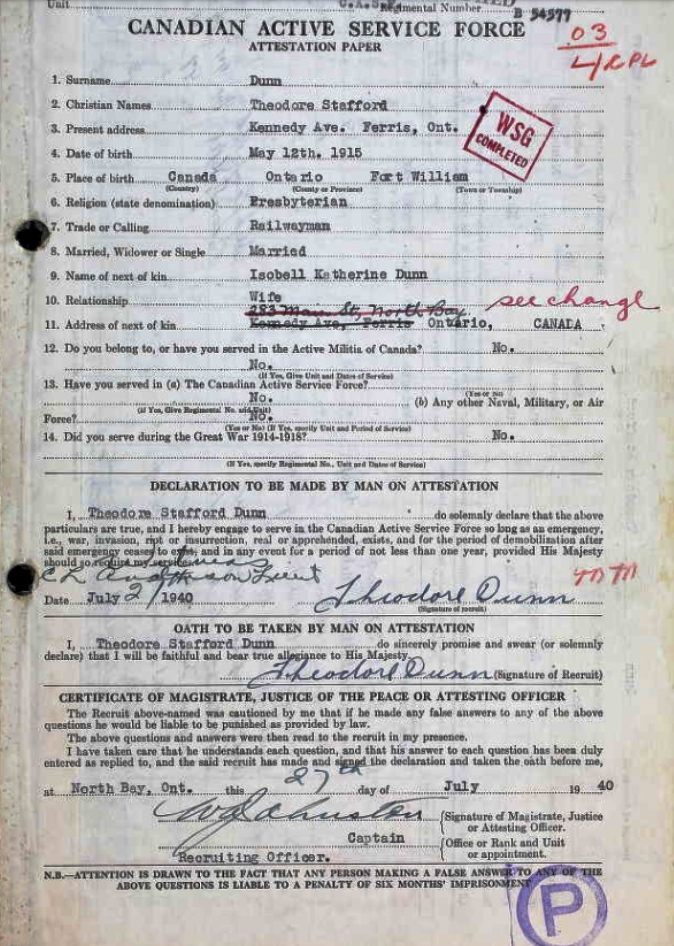 Unit Regimental Number B 54577
CANADIAN ACTIVE SERVICE FORCE
ATTESTATION PAPER
03
L/CPL
1. Surname Dunn
2. Christian Names Theodore Stafford
3. Present address Kennedy Ave. Ferris, Ont.
WSG
COMPLETED
4. Date of birth May 12th. 1915
5. Place of birth Canada Ontario Fort William
(Country) (County or Province) (Town or Township)
6. Religion (state denomination) Presbyterian
7. Trade or Calling Railwayman
8. Married, Widower or Single Married
9. Name of next of kin Isobell Katherine Dunn
10. Relationship Wife see change
283 Main St, North Bay
11. Address of next of kin Kennedy Ave, Ferris Ontario, CANADA
12. Do you belong to, or have you served in the Active Militia of Canada? No.
No.
(If Yes, Give Unit and Dates of Service)
13. Have you served in (a) The Canadian Active Service Force?
(Yes or No)
No. (b) Any other Naval, Military, or Air
(If Yes, Give Regimental No. and Unit)
Force? No.
(Yes or No) (If Yes, specify Unit and Period of Service)
14. Did you serve during the Great War 1914-1918? No.
(If Yes, specify Regimental No., Unit and Dates of Service)
DECLARATION TO BE MADE BY MAN ON ATTESTATION
I, Theodore Stafford Dunn do solemnly declare that the above
particulars are true, and I hereby engage to serve in the Canadian Active Service Force so long as an emergency,
i.e., war, invasion, riot or insurrection, real or apprehended, exists, and for the period of demobilization after
said emergency ceases to exist, and in any event for a period of not less than one year, provided His Majesty
should so require my services.
Lieut
Date July 2/1940 Theodore Dunn
(Signature of recruit)
OATH TO BE TAKEN BY MAN ON ATTESTATION
I, Theodore Stafford Dunn do sincerely promise and swear (or solemnly
declare) that I will be faithful and bear true allegiance to His Majesty.
Theodore Dunn (Signature of Recruit)
CERTIFICATE OF MAGISTRATE, JUSTICE OF THE PEACE OR ATTESTING OFFICER
The Recruit above-named was cautioned by me that if he made any false answers to any of the above
questions he would be liable to be punished as provided by law.
The above questions and answers were then read to the recruit in my presence.
I have taken care that he understands each question, and that his answer to each question has been duly
entered as replied to, and the said recruit has made and signed the declaration and taken the oath before me,
at North Bay, Ont. this 27th day of July 19 40
WJohnston (Signature of Magistrate, Justice
or Attesting Officer.
Captain (Office or Rank and Unit
Recruiting Officer. or appointment.
N.B.—ATTENTION IS DRAWN TO THE FACT THAT ANY PERSON MAKING A FALSE ANSWER TO ANY OF THE
ABOVE QUESTIONS IS LIABLE TO A PENALTY OF SIX MONTHS' IMPRISONMENT
P